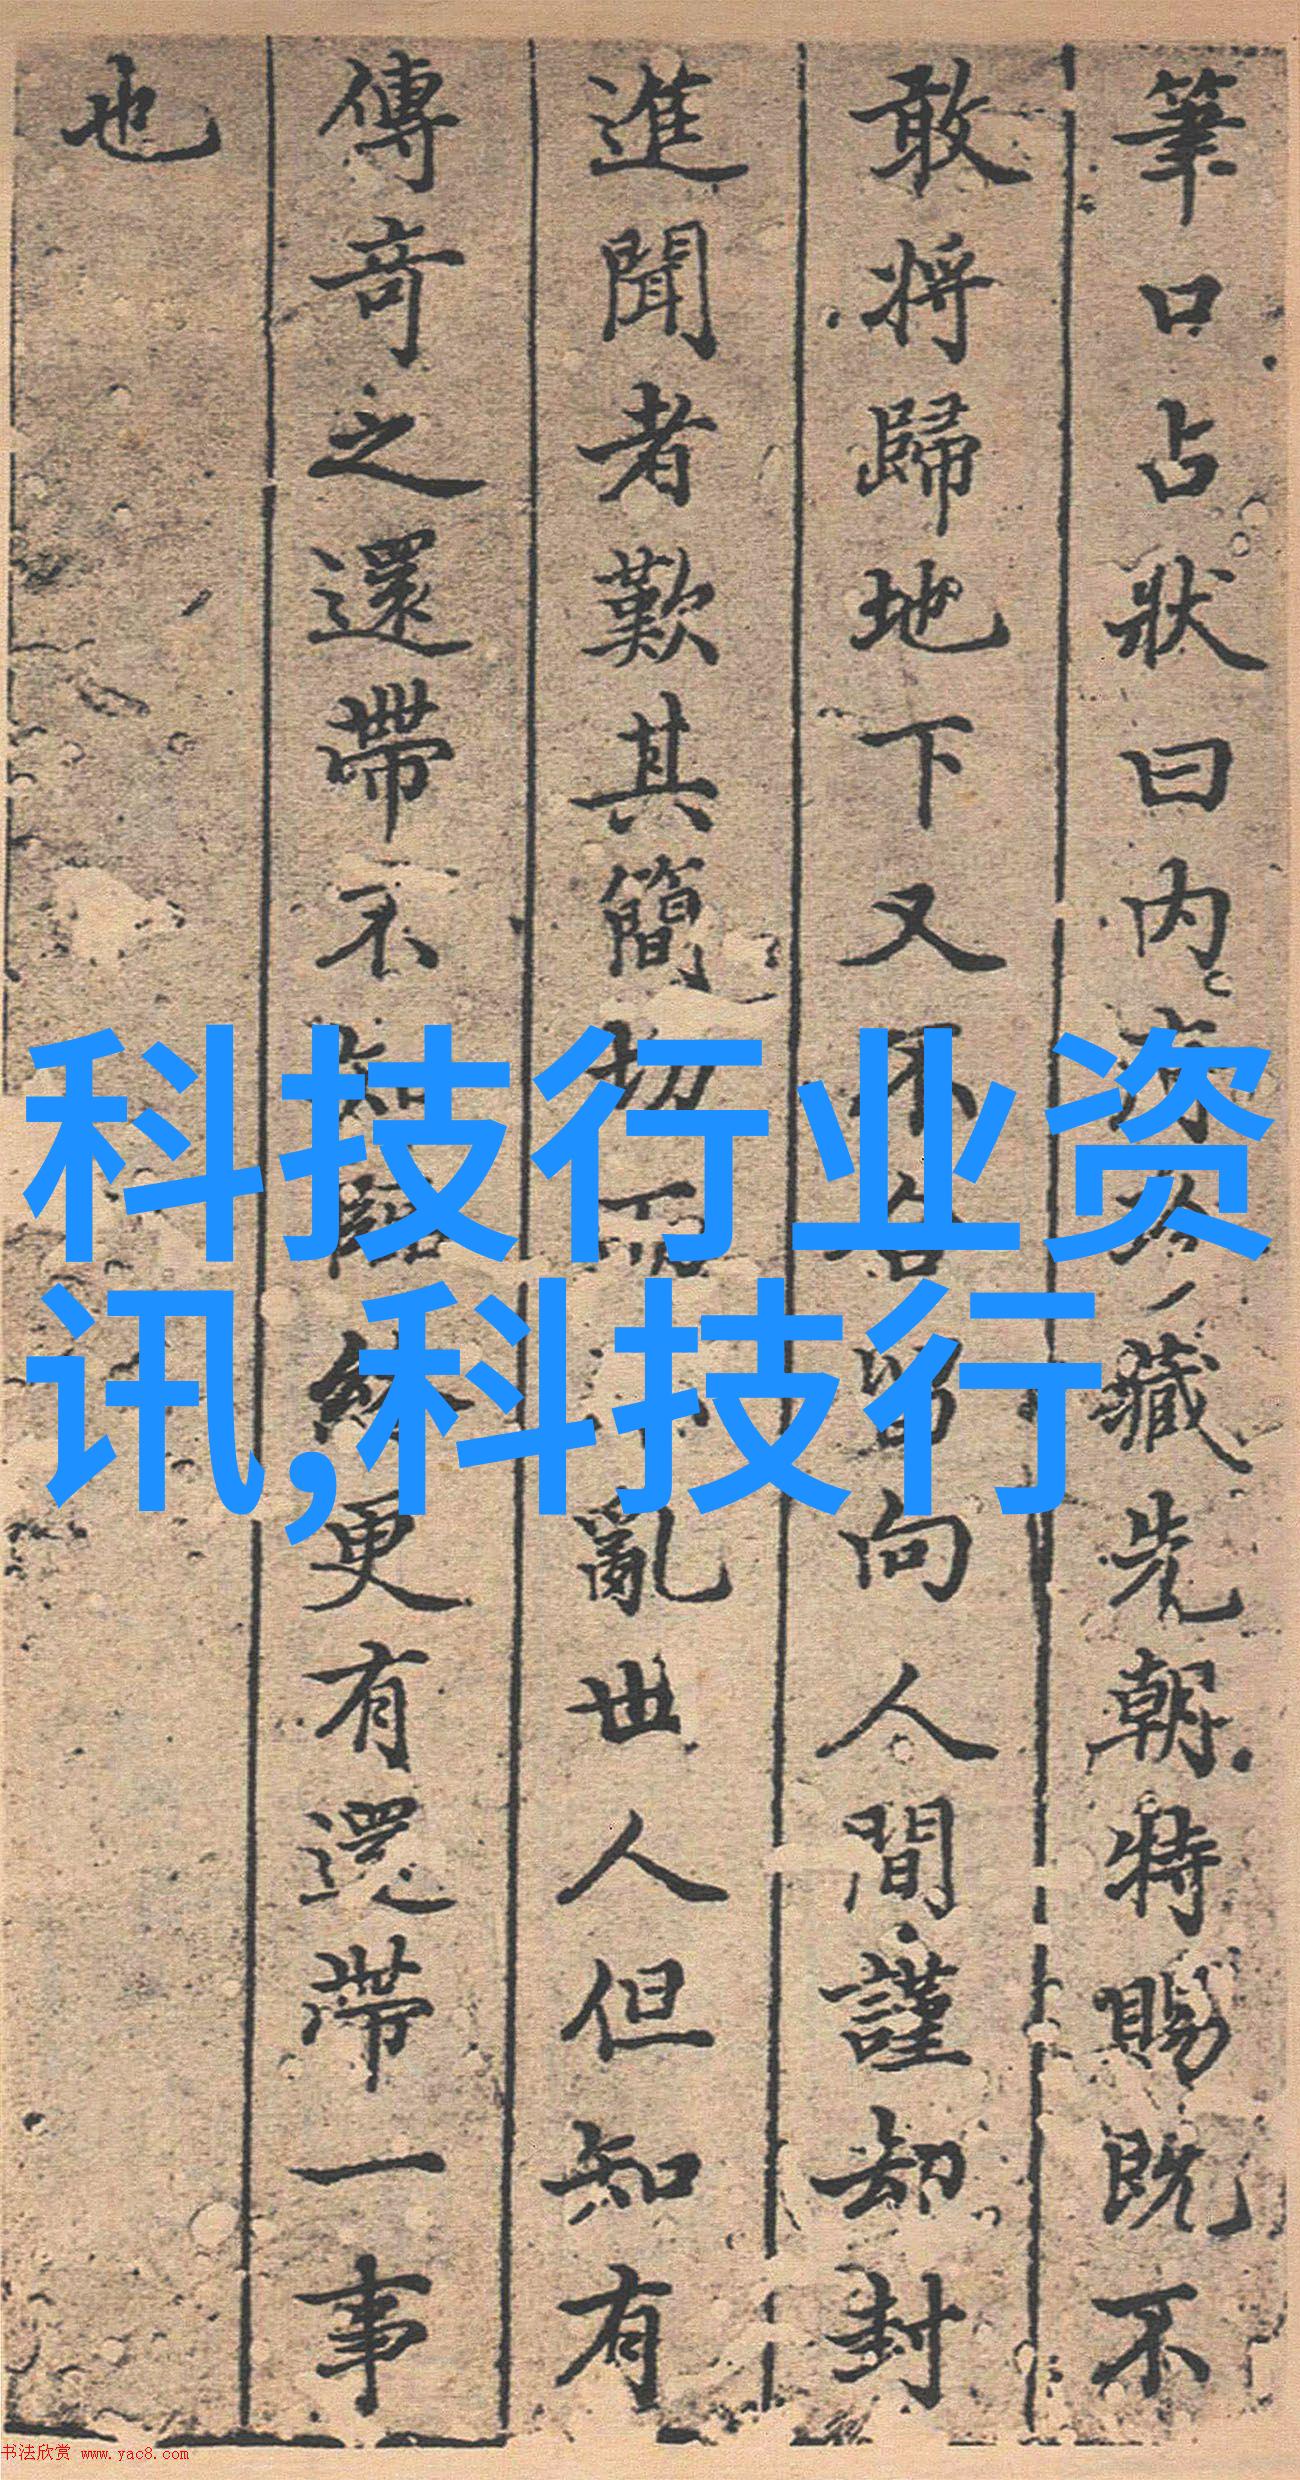 筆口占狀曰内
藏先朝特賜既不
敢將歸地下又不
留向人間謹却封
進聞者歎其簡切
亂世人但知有
傳奇之還帶不知
更有還帶一事
也
科技行业资
讯,科技行
书法欣赏 www.yac8.com